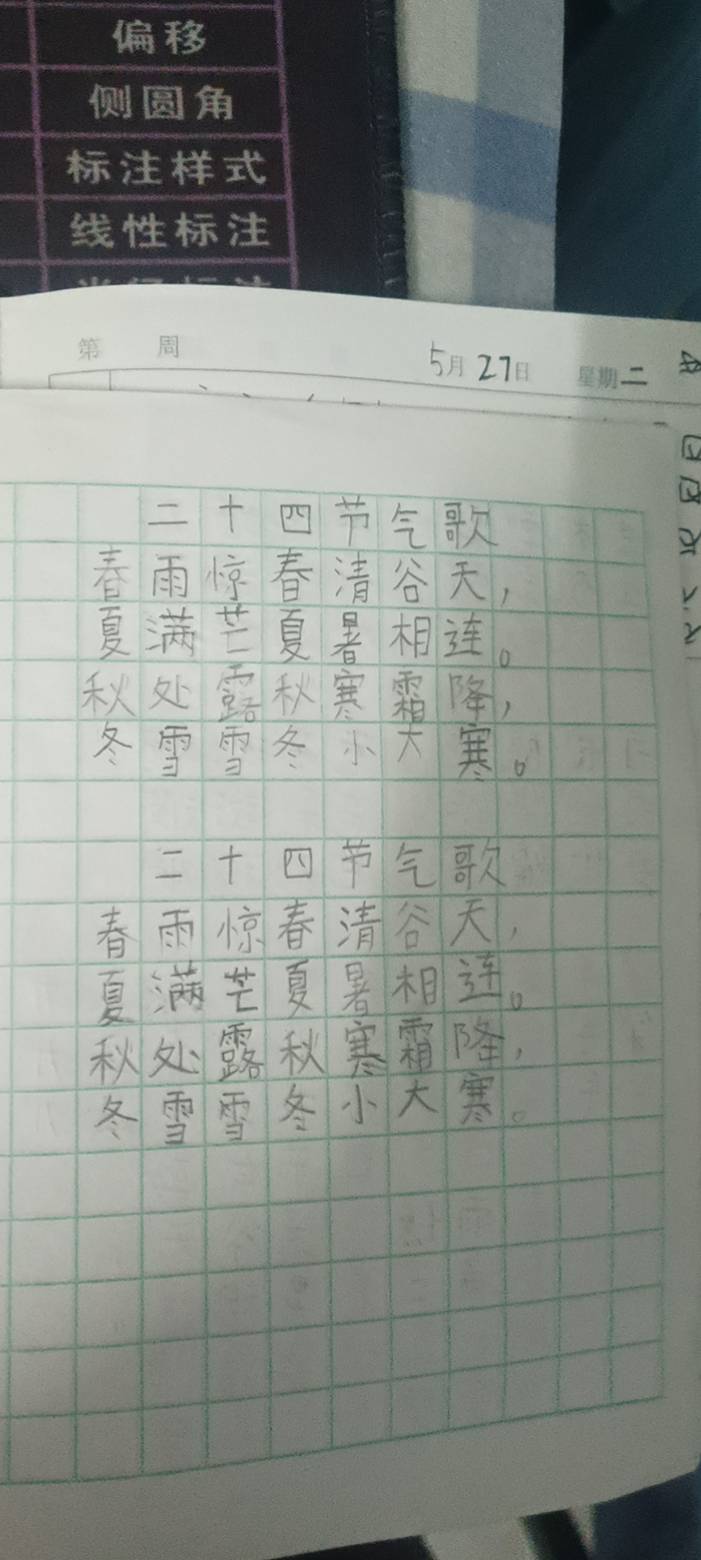 偏移
侧圆角
标注样式
线性标注
第 周 5月27日 星期二
二十四节气歌
春雨惊春清谷天，
夏满芒夏暑相连。
秋处露秋寒霜降，
冬雪雪冬小大寒。
二十四节气歌
春雨惊春清谷天，
夏满芒夏暑相连。
秋处露秋寒霜降，
冬雪雪冬小大寒。